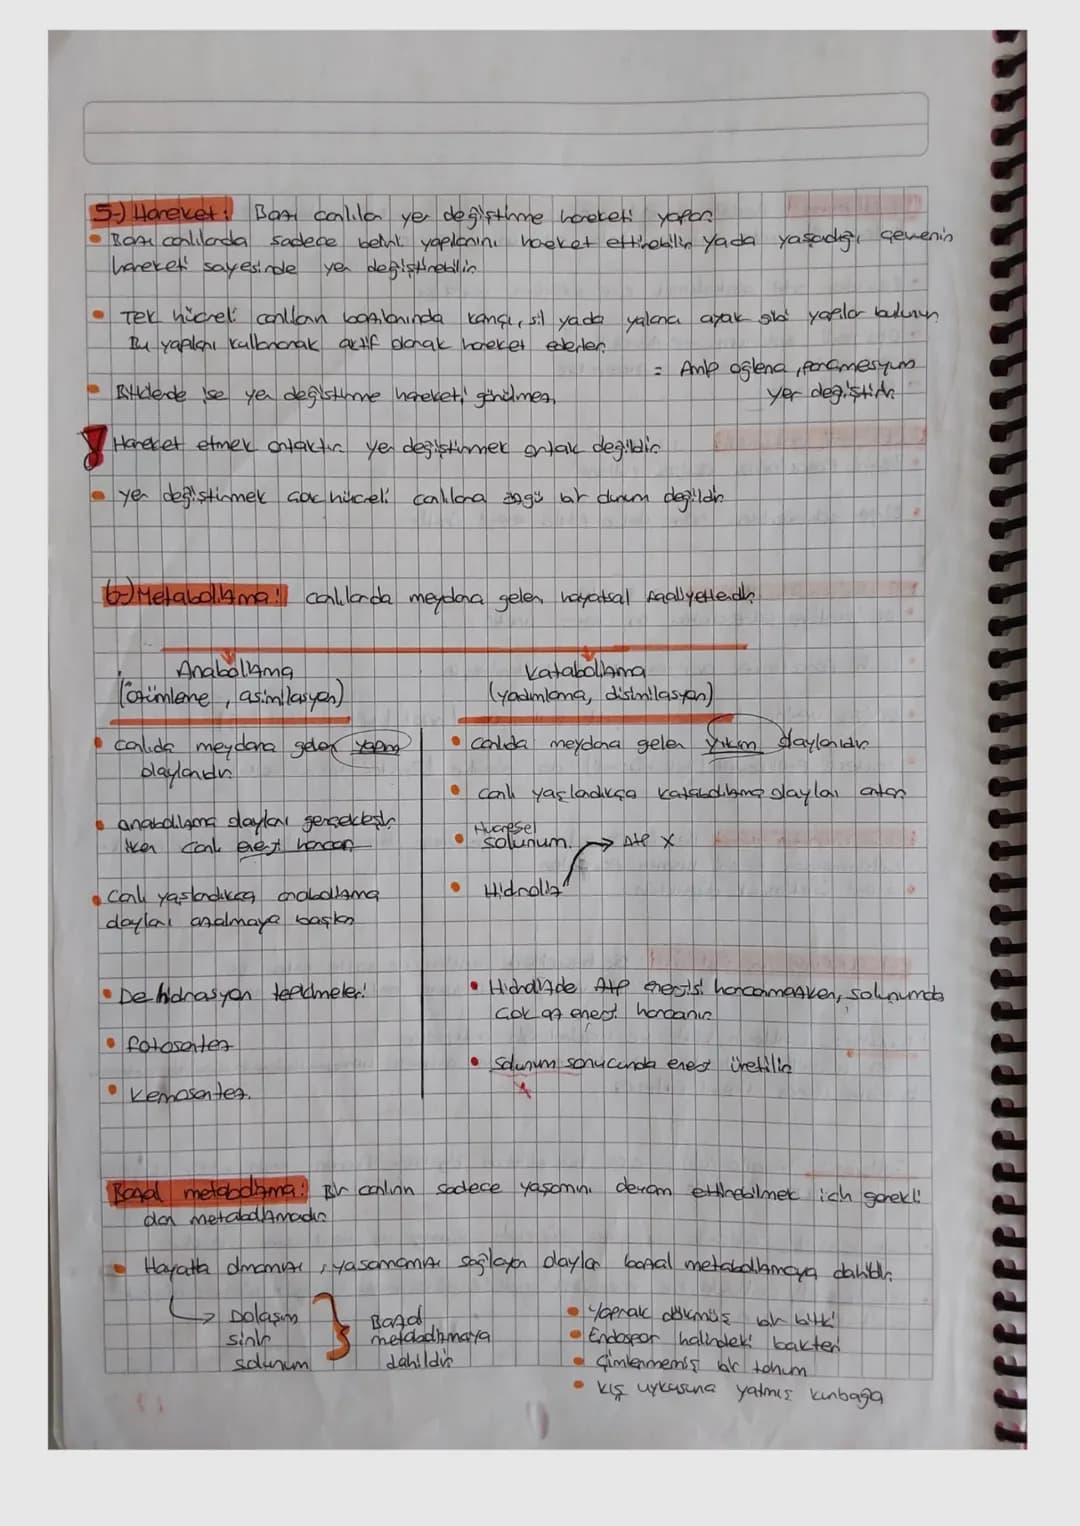 5-) Hareket: Bazı canlılar yer değiştirme hareketi yapar.
• Bazı canlılarda sadece belirli yapılarını hareket ettirebilir yada yaşadığı çevrenin
hareketi sayesinde yer değiştirebilir.
• Tek hücreli canlıların bazılarında kamçı, sil yada yalancı ayak gibi yapılar bulunur.
Bu yapıları kullanarak aktif olarak hareket ederler.
= Amip öglena, paramesyum
yer değiştirir.
• Bitkilerde ise yer değiştirme hareketi görülmez.
! Hareket etmek ortaktır yer değiştirmek ortak değildir.
• yer değiştirmek çok hücreli canlılara özgü bir durum değildir.
6-) Metabolizma: canlılarda meydana gelen hayatsal faaliyetlerdir.
Anabolizma
(özümleme, asimilasyon)
• canlıda meydana gelen yapım
olaylarıdır.
• anabolizma olayları gerçekleşir
iken canlı enerji harcar
• canlı yaşlandıkça anabolizma
olayları azalmaya başlar
• Dehidrasyon tepkimeleri
• fotosentez
• kemosentez.
Katabolizma
(yadımlama, disimilasyon)
• canlıda meydana gelen yıkım olaylarıdır.
• canlı yaşladıkça katabolizma olayları artar
• Hücresel
solunum. → ATP X
• Hidroliz
• Hidrolizde ATP enerjisi harcanmazken, solunumda
çok az enerji harcanır.
• Solunum sonucunda enerji üretilir.
Bazal metabolizma: Bir canlının sadece yaşamını devam ettirebilmek için gerekli
olan metabolizmadır.
• Hayatta olmamızı, yaşamamızı sağlayan olaylar bazal metabolizmaya dahildir.
→ Dolaşım
sinir
solunum
} Bazal
metabolizmaya
dahildir
• Yaprak dökmüş bir bitki
• Endospor halindeki bakteri
• Çimlenmemiş bir tohum
• kış uykusuna yatmış kurbağa